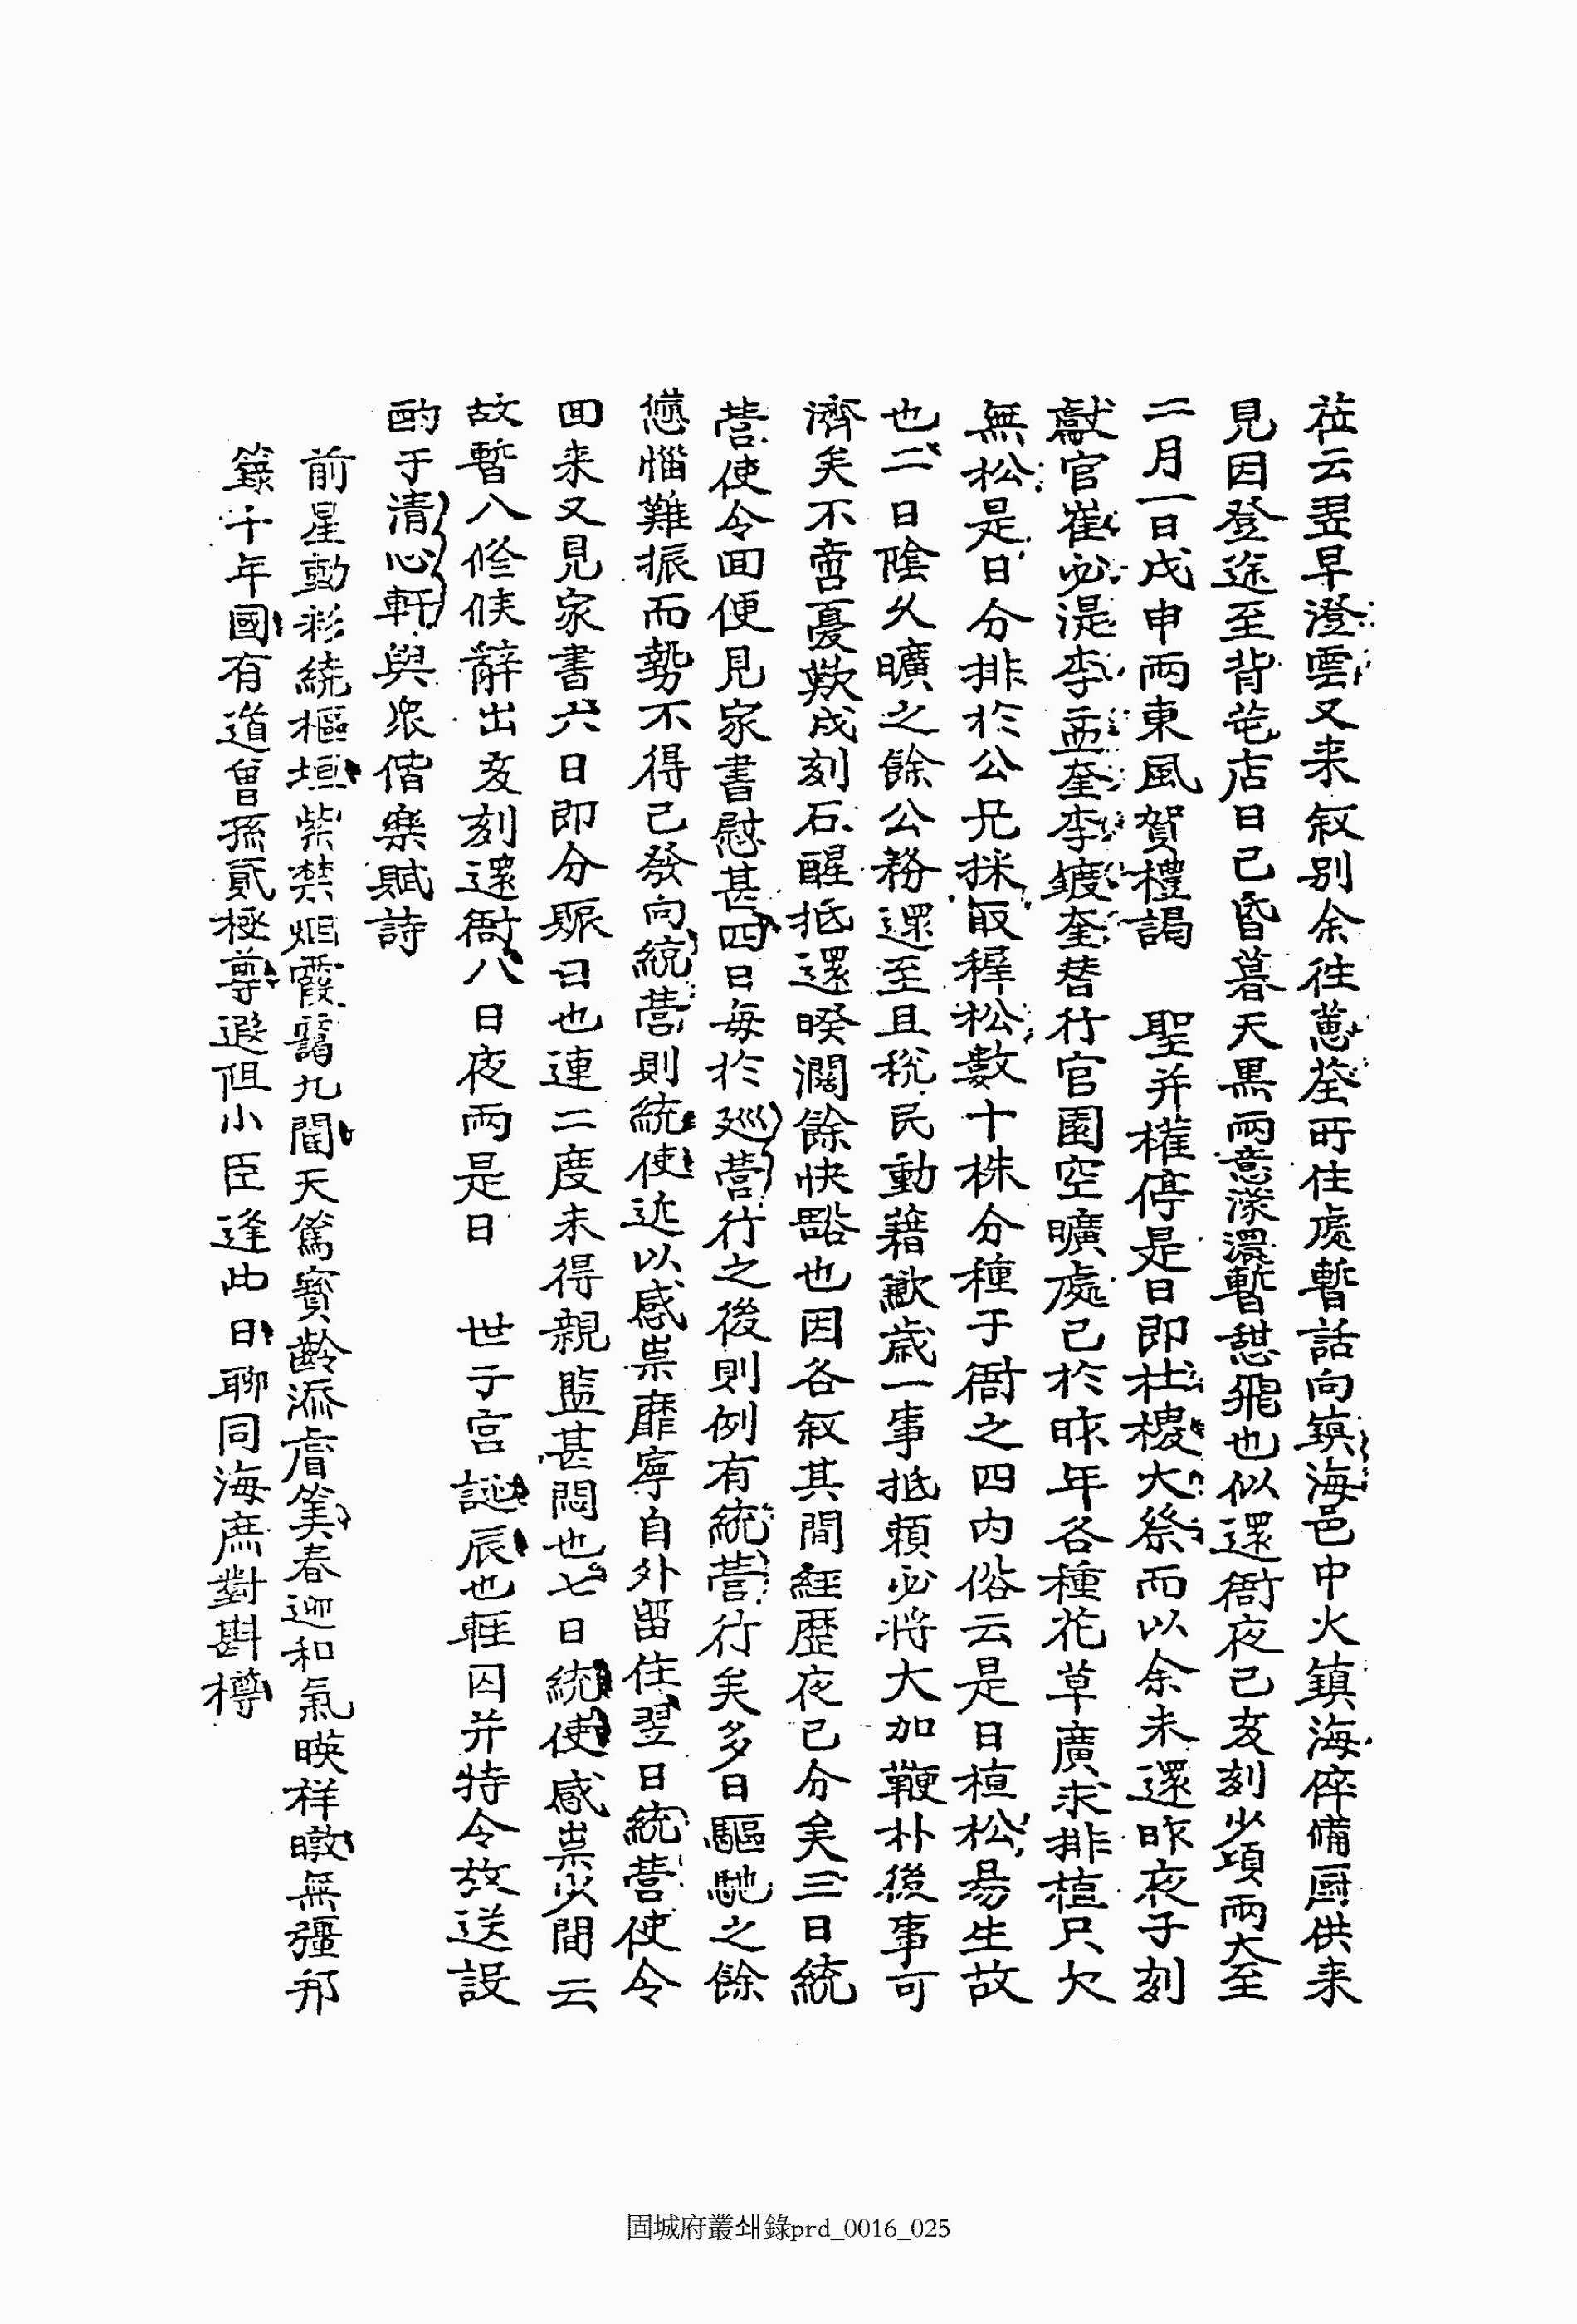 莅云翌早澄雲又来叙别余往蔥荃所住處暫話向鎮海邑中火鎮海倅備厨供来
見因登途至背芚店日已昏暮天黑雨意濛濃暫憇飛也似還衙夜已亥刻少頃雨大至
二月一日戊申雨東風賀禮謁 聖并權停是日即社稷大祭而以余未還昨夜子刻
獻官崔必湜李孟奎李鍍奎替行官園空曠處已於昨年各種花草廣求排植只欠
無松是日分排於公兄採取穉松數十株分種于衙之四内俗云是日植松易生故
也二日陰久曠之餘公務還至且稅民動藉歉歲一事抵賴必將大加鞭朴後事可
濟矣不啻憂歎戌刻石醒抵還暌濶餘快豁也因各叙其間經歷夜已分矣三日統
營使令回便見家書慰甚四日每於廵營行之後則例有統營行矣多日驅馳之餘
憊惱難振而勢不得已發向統營則統使近以感祟靡寧自外留住翌日統營使令
回来又見家書六日即分賑日也連二度未得親監甚悶也七日統使感祟少間云
故暫入修候辭出亥刻還衙八日夜雨是日 世子宮誕辰也輕囚并特令放送設
酌于清心軒與衆偕樂賦詩
前星動彩繞樞垣紫禁烟霞靄九閽天篤寳齡添睿筭春迎和氣暎祥暾無疆邦
籙千年國有道曾孫貳極尊遐俎小臣逢此日聊同海庶對斟樽
固城府叢쇄錄prd_0016_025